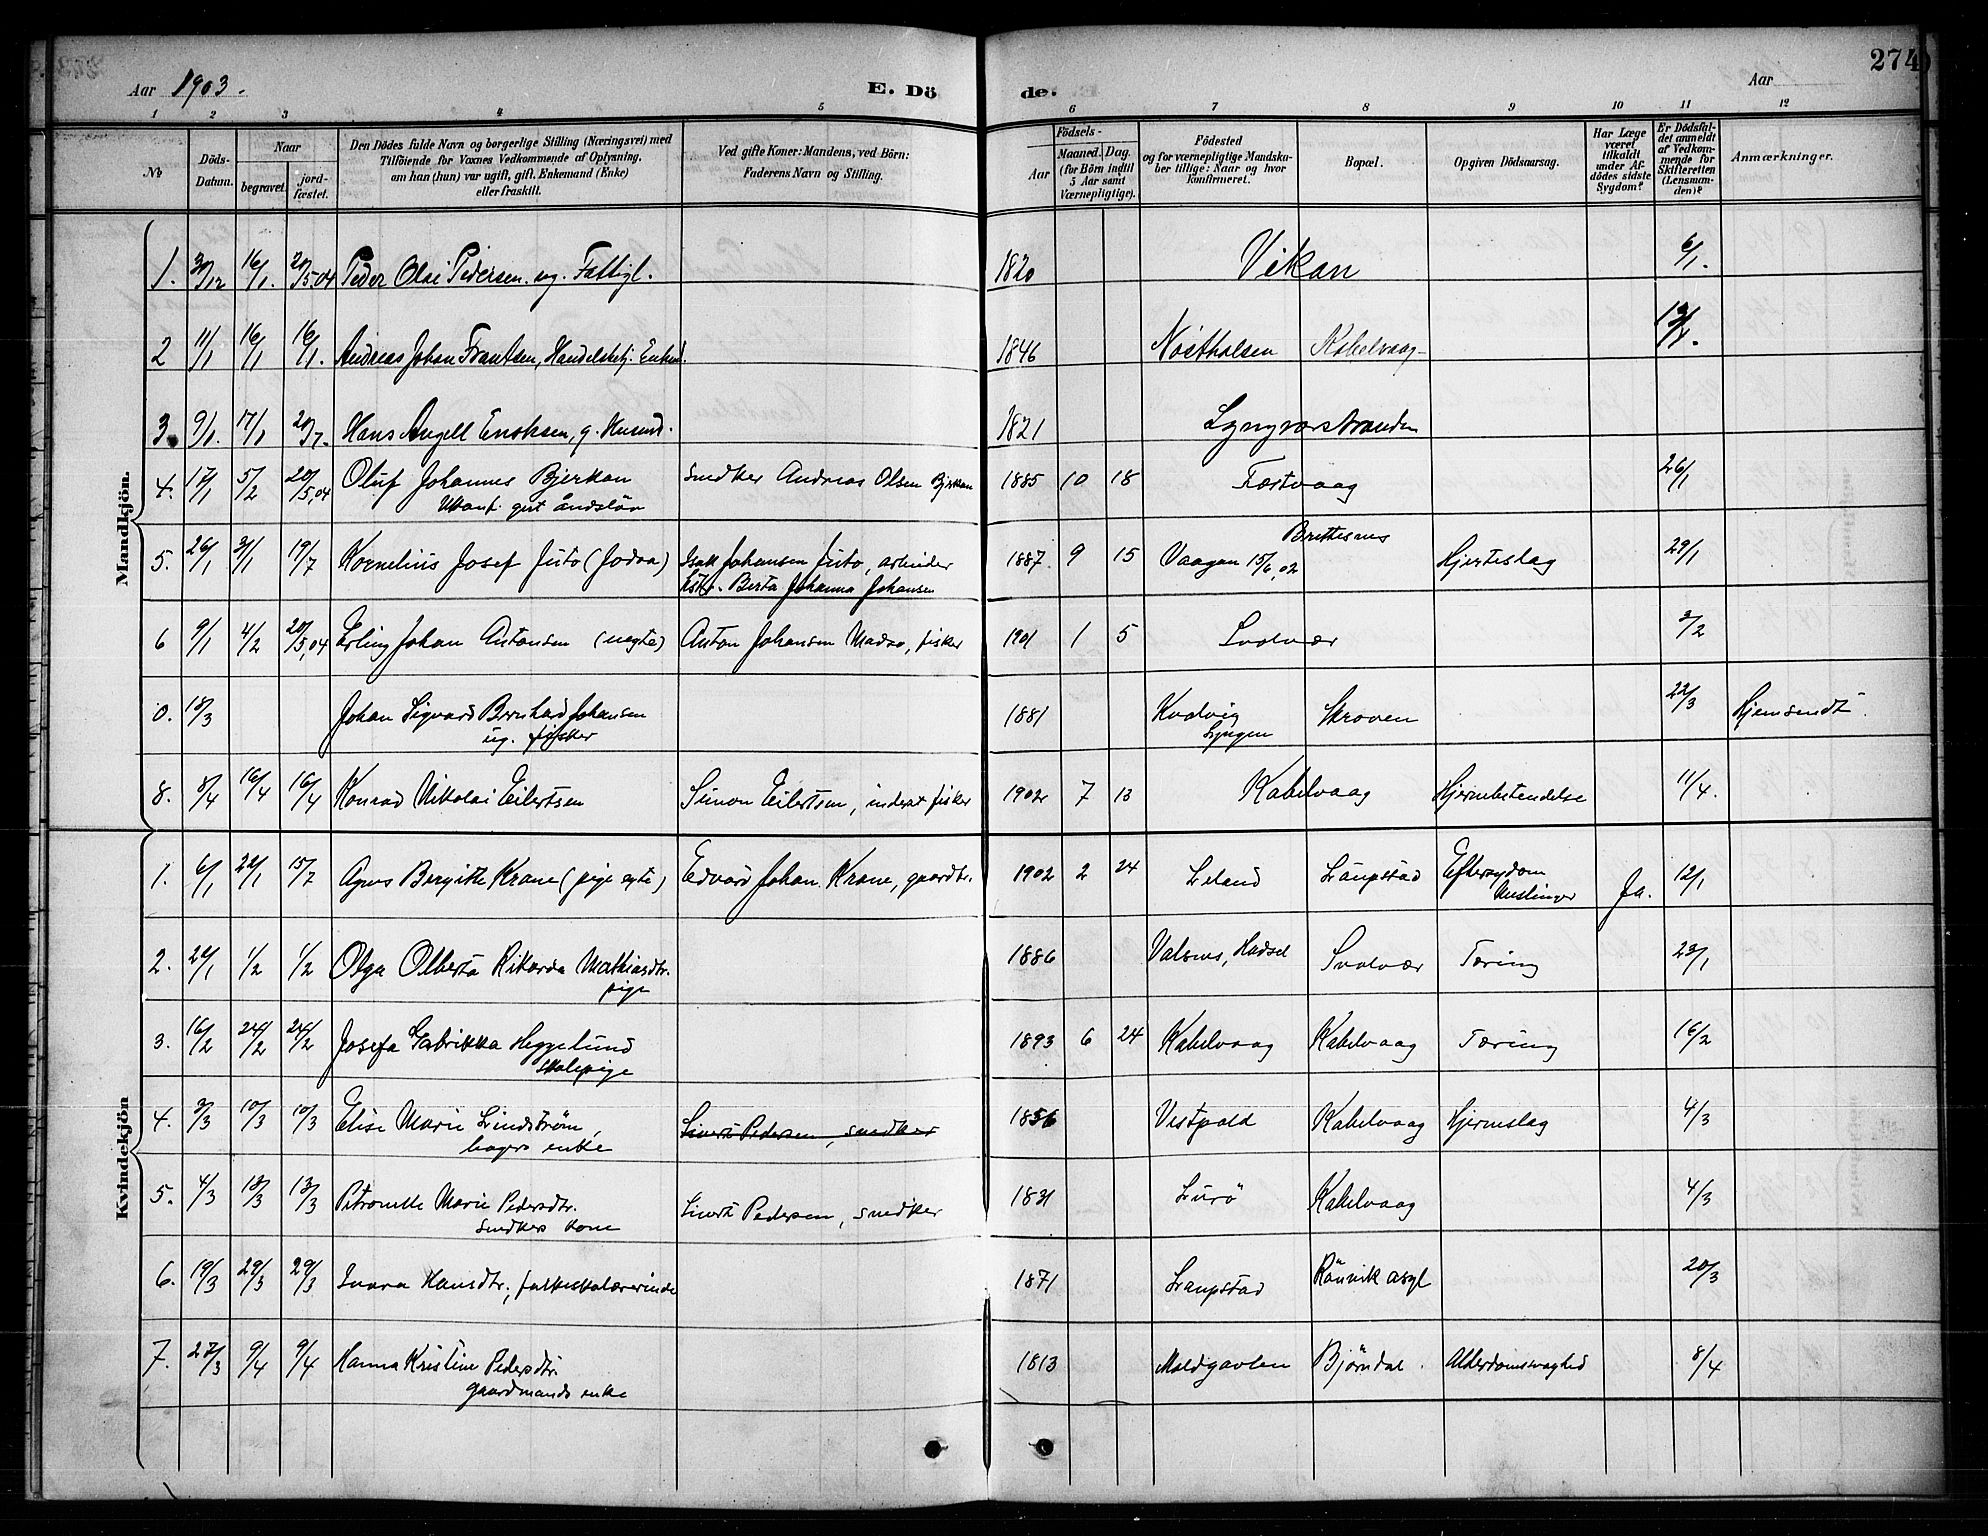 274
Aar 1903.
E. Döde.
Aar
1 2 3 4 5 6 7 8 9 10 11 12
No
Döds-Datum.
Naar
begravet.
jordfæstet.
Den Dödes fulde Navn og borgerlige Stilling (Næringsvei) med
Tilföiende for Voxnes Vedkommende af Oplysning,
om han (hun) var ugift, gift, Enkemand (Enke)
eller fraskilt.
Ved gifte Koner: Mandens, ved Börn:
Faderens Navn og Stilling.
Födsels-
Aar
Maaned. Dag.
(for Börn indtil
5 Aar samt
Værnepligtige).
Födested
og for værnepligtige Mandskaber tillige: Naar og hvor
konfirmeret.
Bopæl.
Opgiven Dödsaarsag.
Har Læge
været
tilkaldt
under Afdödes sidste
Sygdom?
Er Dödsfaldet anmeldt
af Vedkommende for
Skifteretten
(Lensmanden)?
Anmærkninger.
Mandkjön.
1. 30/12 16/1. 20/5.04 Peder Olai Pedersen. ug. Fattigl. 1820 Vikan 6/1.
2 11/1 16/1 16/1. Andreas Johan Frantsen, Handelsbetj. Enkm. 1846 Nöstholsen Kabelvaag 12/1.
3. 9/1. 17/1 20/7. Hans Angell Enoksen, g. Husmd. 1821 Lyngværstranden
4. 17/1 5/2 20/5,04 Oluf Johannes Bjerkan Snedker Andreas Olsen Bjerkan 1885 10 18 Festvaag 26/1
Ukonf. åndslöv
5. 26/1 31/1 19/7 Kornelius Josef Juto (Jodva) Isak Johansen Juto, arbeider 1887. 9 15 Vaagan 15/6,02 Brettesnes Hjerteslag 29/1
Berta Johanna Johansen
6 9/1 4/2 20/5,04 Erling Johan Antonsen (uegte) Anton Johansen Madsö, fisker 1901 1 5 Svolvær 3/2
0. 18/3 Johan Sigvard Bernhard Johansen 1881 Kvalvig Skroven 22/3 Hjemsendt.
ug. fisker Lyngen
8. 8/4 16/4 16/4 Konrad Nikolai Eilertsen Simon Eilertsen, inderst fisker 1902 7 13 Kabelvaag Hjernebetendelse 11/4.
Kvindekjön
1. 6/1 22/1 15/7 Agnes Bergitte Krane (pige egte) Edvard Johan Krane, gaardbr. 1902 2 24 Leland Laupstad Eftersygdom Ja. 12/1
Meslinger
2. 22/1 1/2 1/2 Olga Olberta Rikarda Mathiasdtr. 1886 Valsnes, Hadsel Svolvær Tæring 23/1
pige
3. 16/2 24/2 24/2 Josefa Gabrikka Heggelund 1893 6 24 Kabelvaag Kabelvaag Tæring 16/2
Skolepige
4. 3/3 10/3 10/3 Elise Marie Lindström, Sivert Pedersen, snedker 1856 Vestpold Kabelvaag Hjerneslag 4/3
bagers enke
5. 4/3 13/3 13/3 Petronelle Marie Pedersdtr. Sivert Pedersen, snedker 1831 Lurö Kabelvaag 4/3
Snedkers kone
6. 19/3 29/3 29/3 Ivara Hansdtr., folkeskolærerinde 1871 Laupstad Rönvik asyl 20/3
7. 27/3 9/4 9/4 Hanna Kristine Pedersdtr. 1813 Moldgavlen Björndal. Alderdomssvaghed 8/4
gaardmands enke